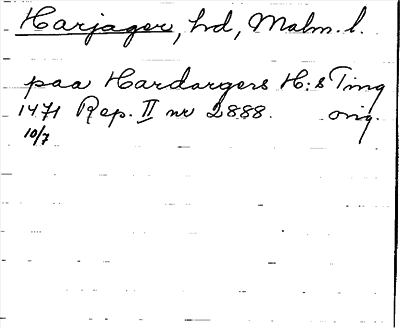 Harjager, hd, Malm. l.
paa Hardargers H:s Ting
1471 Rep. II nr 2888. orig.
10/7